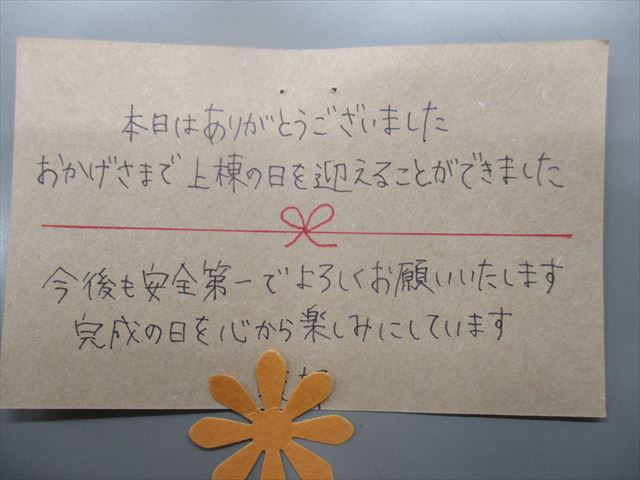 本日はありがとうございました
おかげさまで上棟の日を迎えることができました
今後も安全第一でよろしくお願いいたします
完成の日を心から楽しみにしています